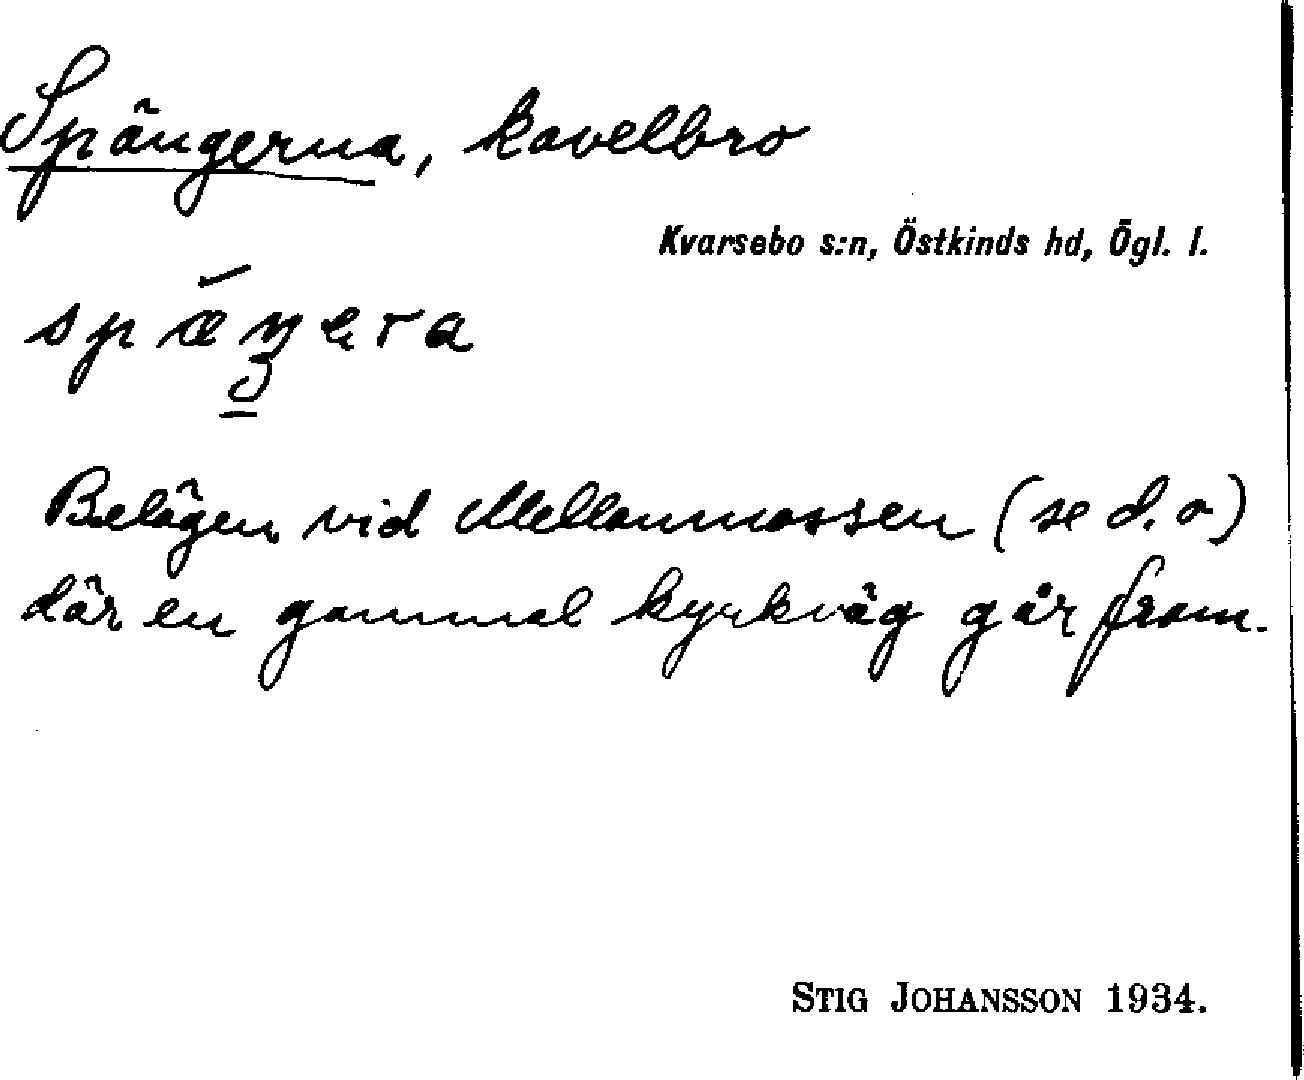 Spängerna, kavelbro
Kvarsebo s:n, Östkinds hd, Ögl. l.
Belägen vid Mellanmossen (se d. o)
där en gammal kyrkväg går fram.
STIG JOHANSSON 1934.